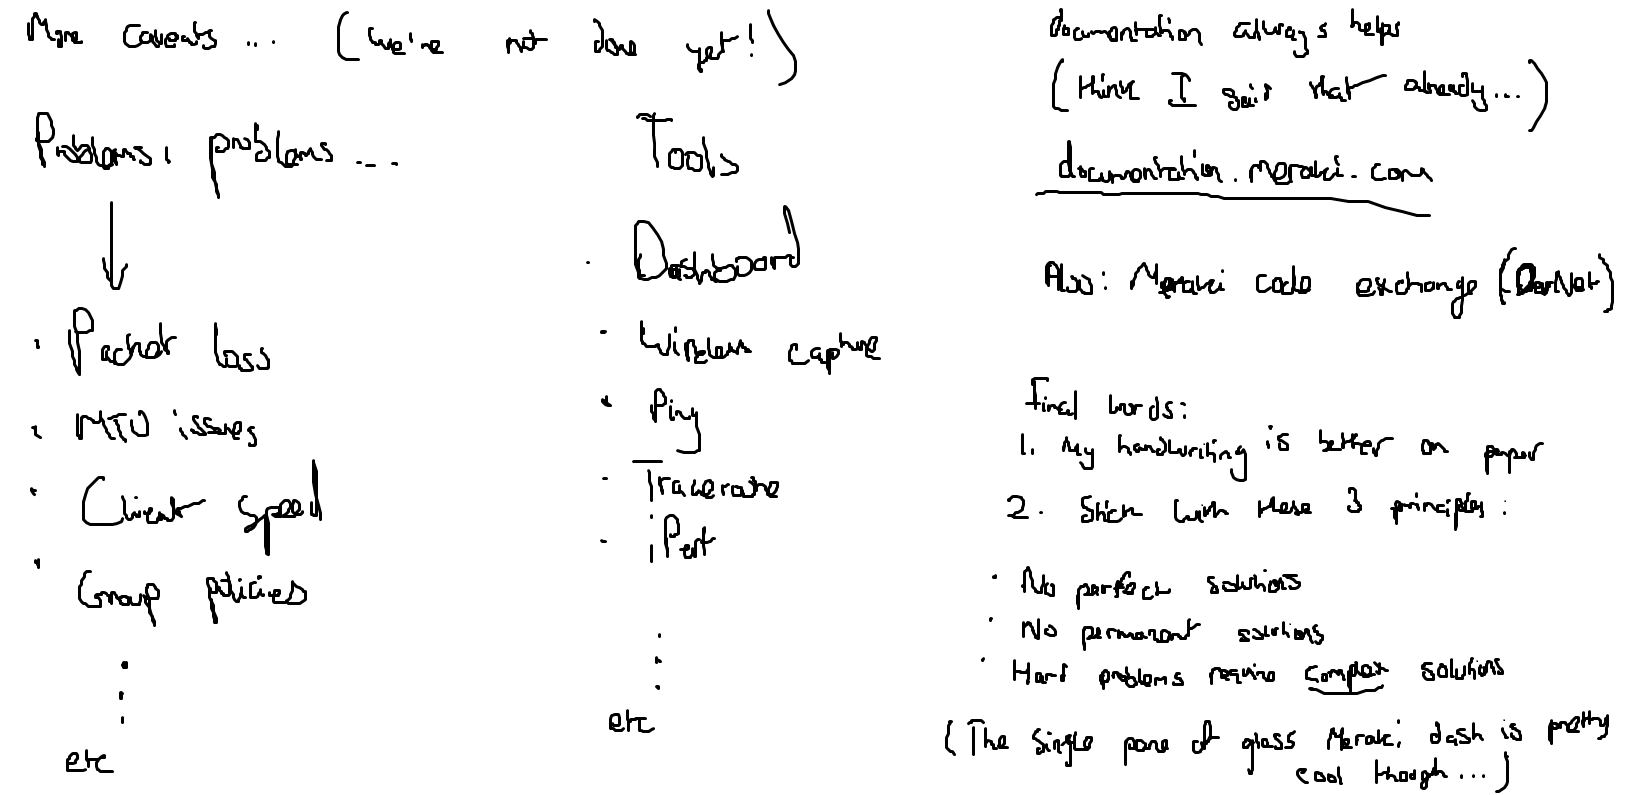 More caveats ... (we're not done yet!)
Problems, problems ...
· Packet loss
· MTU issues
· Client speed
· Group policies
etc
Tools
· Dashboard
· Wireless capture
· Ping
· Traceroute
· iPerf
etc
documentation always helps
(think I said that already...)
documentation.meraki.com
Also: Meraki code exchange (DevNet)
Final words:
1. My handwriting is better on paper
2. Stick with these 3 principles:
· No perfect solutions
· No permanent solutions
· Hard problems require complex solutions
(The single pane of glass Meraki dash is pretty
cool though...)